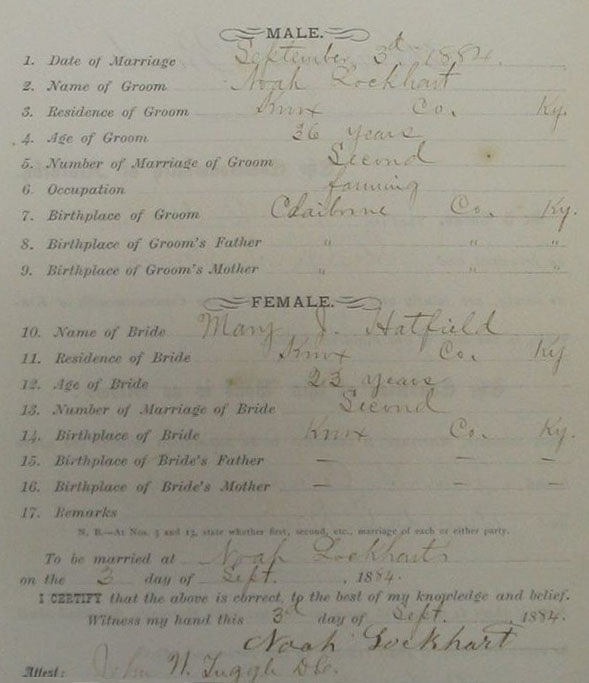 MALE.
1. Date of Marriage September 3d 1884.
2. Name of Groom Noah Lockhart
3. Residence of Groom Knox Co. Ky.
4. Age of Groom 36 years
5. Number of Marriage of Groom Second
6. Occupation farming
7. Birthplace of Groom Claiborne Co. Ky.
8. Birthplace of Groom's Father " " "
9. Birthplace of Groom's Mother " " "
FEMALE.
10. Name of Bride Mary J. Hatfield
11. Residence of Bride Knox Co. Ky
12. Age of Bride 23 years
13. Number of Marriage of Bride Second
14. Birthplace of Bride Knox Co. Ky.
15. Birthplace of Bride's Father — — —
16. Birthplace of Bride's Mother — — —
17. Remarks
N. B.—At Nos. 5 and 13, state whether first, second, etc., marriage of each or either party.
To be married at Noah Lockharts
on the 3 day of Sept. , 1884.
I CERTIFY that the above is correct, to the best of my knowledge and belief.
Witness my hand this 3d day of Sept. , 1884.
Noah Lockhart
Attest: John H. Tuggle D.C.